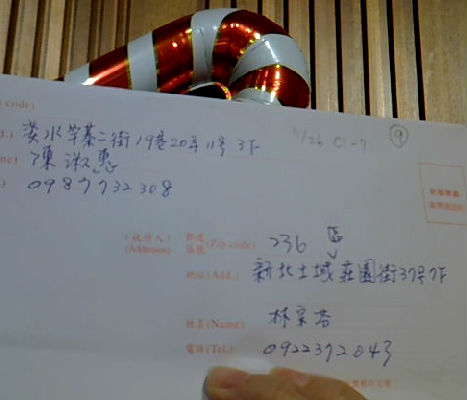 code)
淡水竿蓁二街19巷20弄11号3F
陳淑惠
0987732308
11/26 C1-7
(收件人) 郵遞區號 (Zip code) 236 區
(Addressee)
地址 (Add.) 新北土城莊園街37号7F
姓名 (Name) 林宗
電話 (Tel.) 0922372043